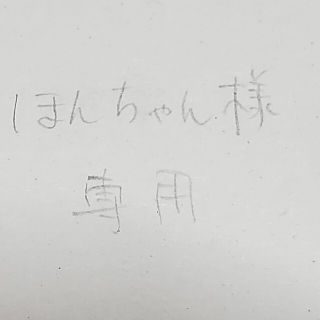 ほんちゃん様
専用